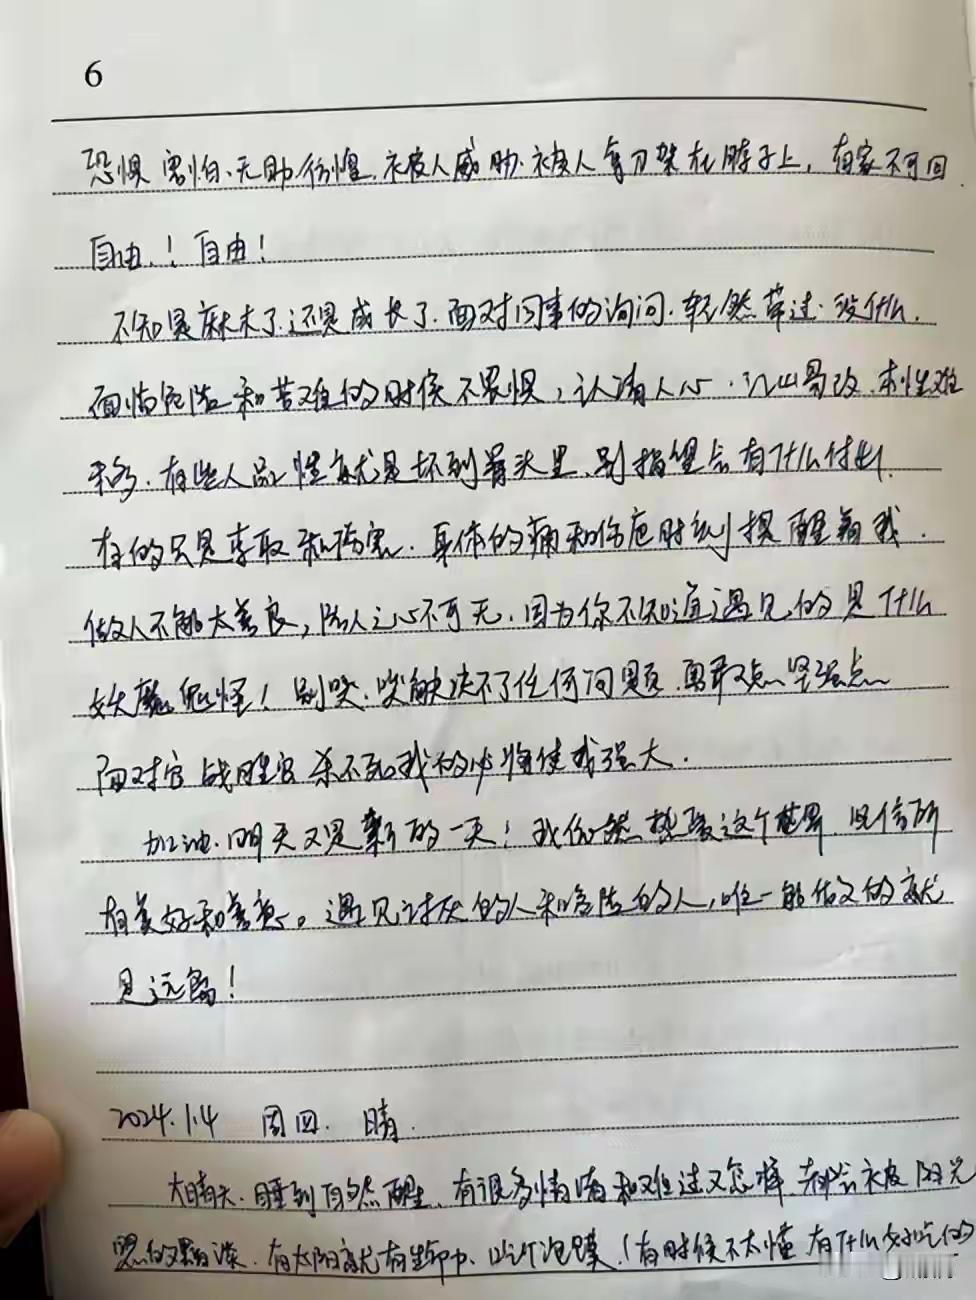 6
恐惧 害怕、无助 彷徨. 被人威胁. 被人拿刀架在脖子上, 有家不可回.
自由.! 自由!
不知是麻木了还是成长了. 面对同事的询问. 轻然带过. 没什么.
面临危险和苦难的时候不畏惧, 认清人心. 江山易改. 本性难
移. 有些人品性就是坏到骨头里. 别指望会有什么付出.
有的只是索取和伤害. 身体的痛和伤疤时刻提醒着我.
做人不能太善良, 防人之心不可无. 因为你不知道遇见的是什么
妖魔鬼怪! 别哭. 哭解决不了任何问题. 勇敢点 坚强点
面对它 战胜它 杀不死我的必将使我强大.
加油. 明天又是新的一天! 我依然热爱这个世界. 坚信所
有美好和善意。遇见讨厌的人和危险的人, 唯一能做的就
是远离!
2024.1.4 周四. 晴.
大晴天. 睡到自然醒. 有很多情绪和难过又怎样. 都会被阳光
照的. 有太阳就有生命力. 吃个泡馍! 有时候不太懂 有什么好吃的